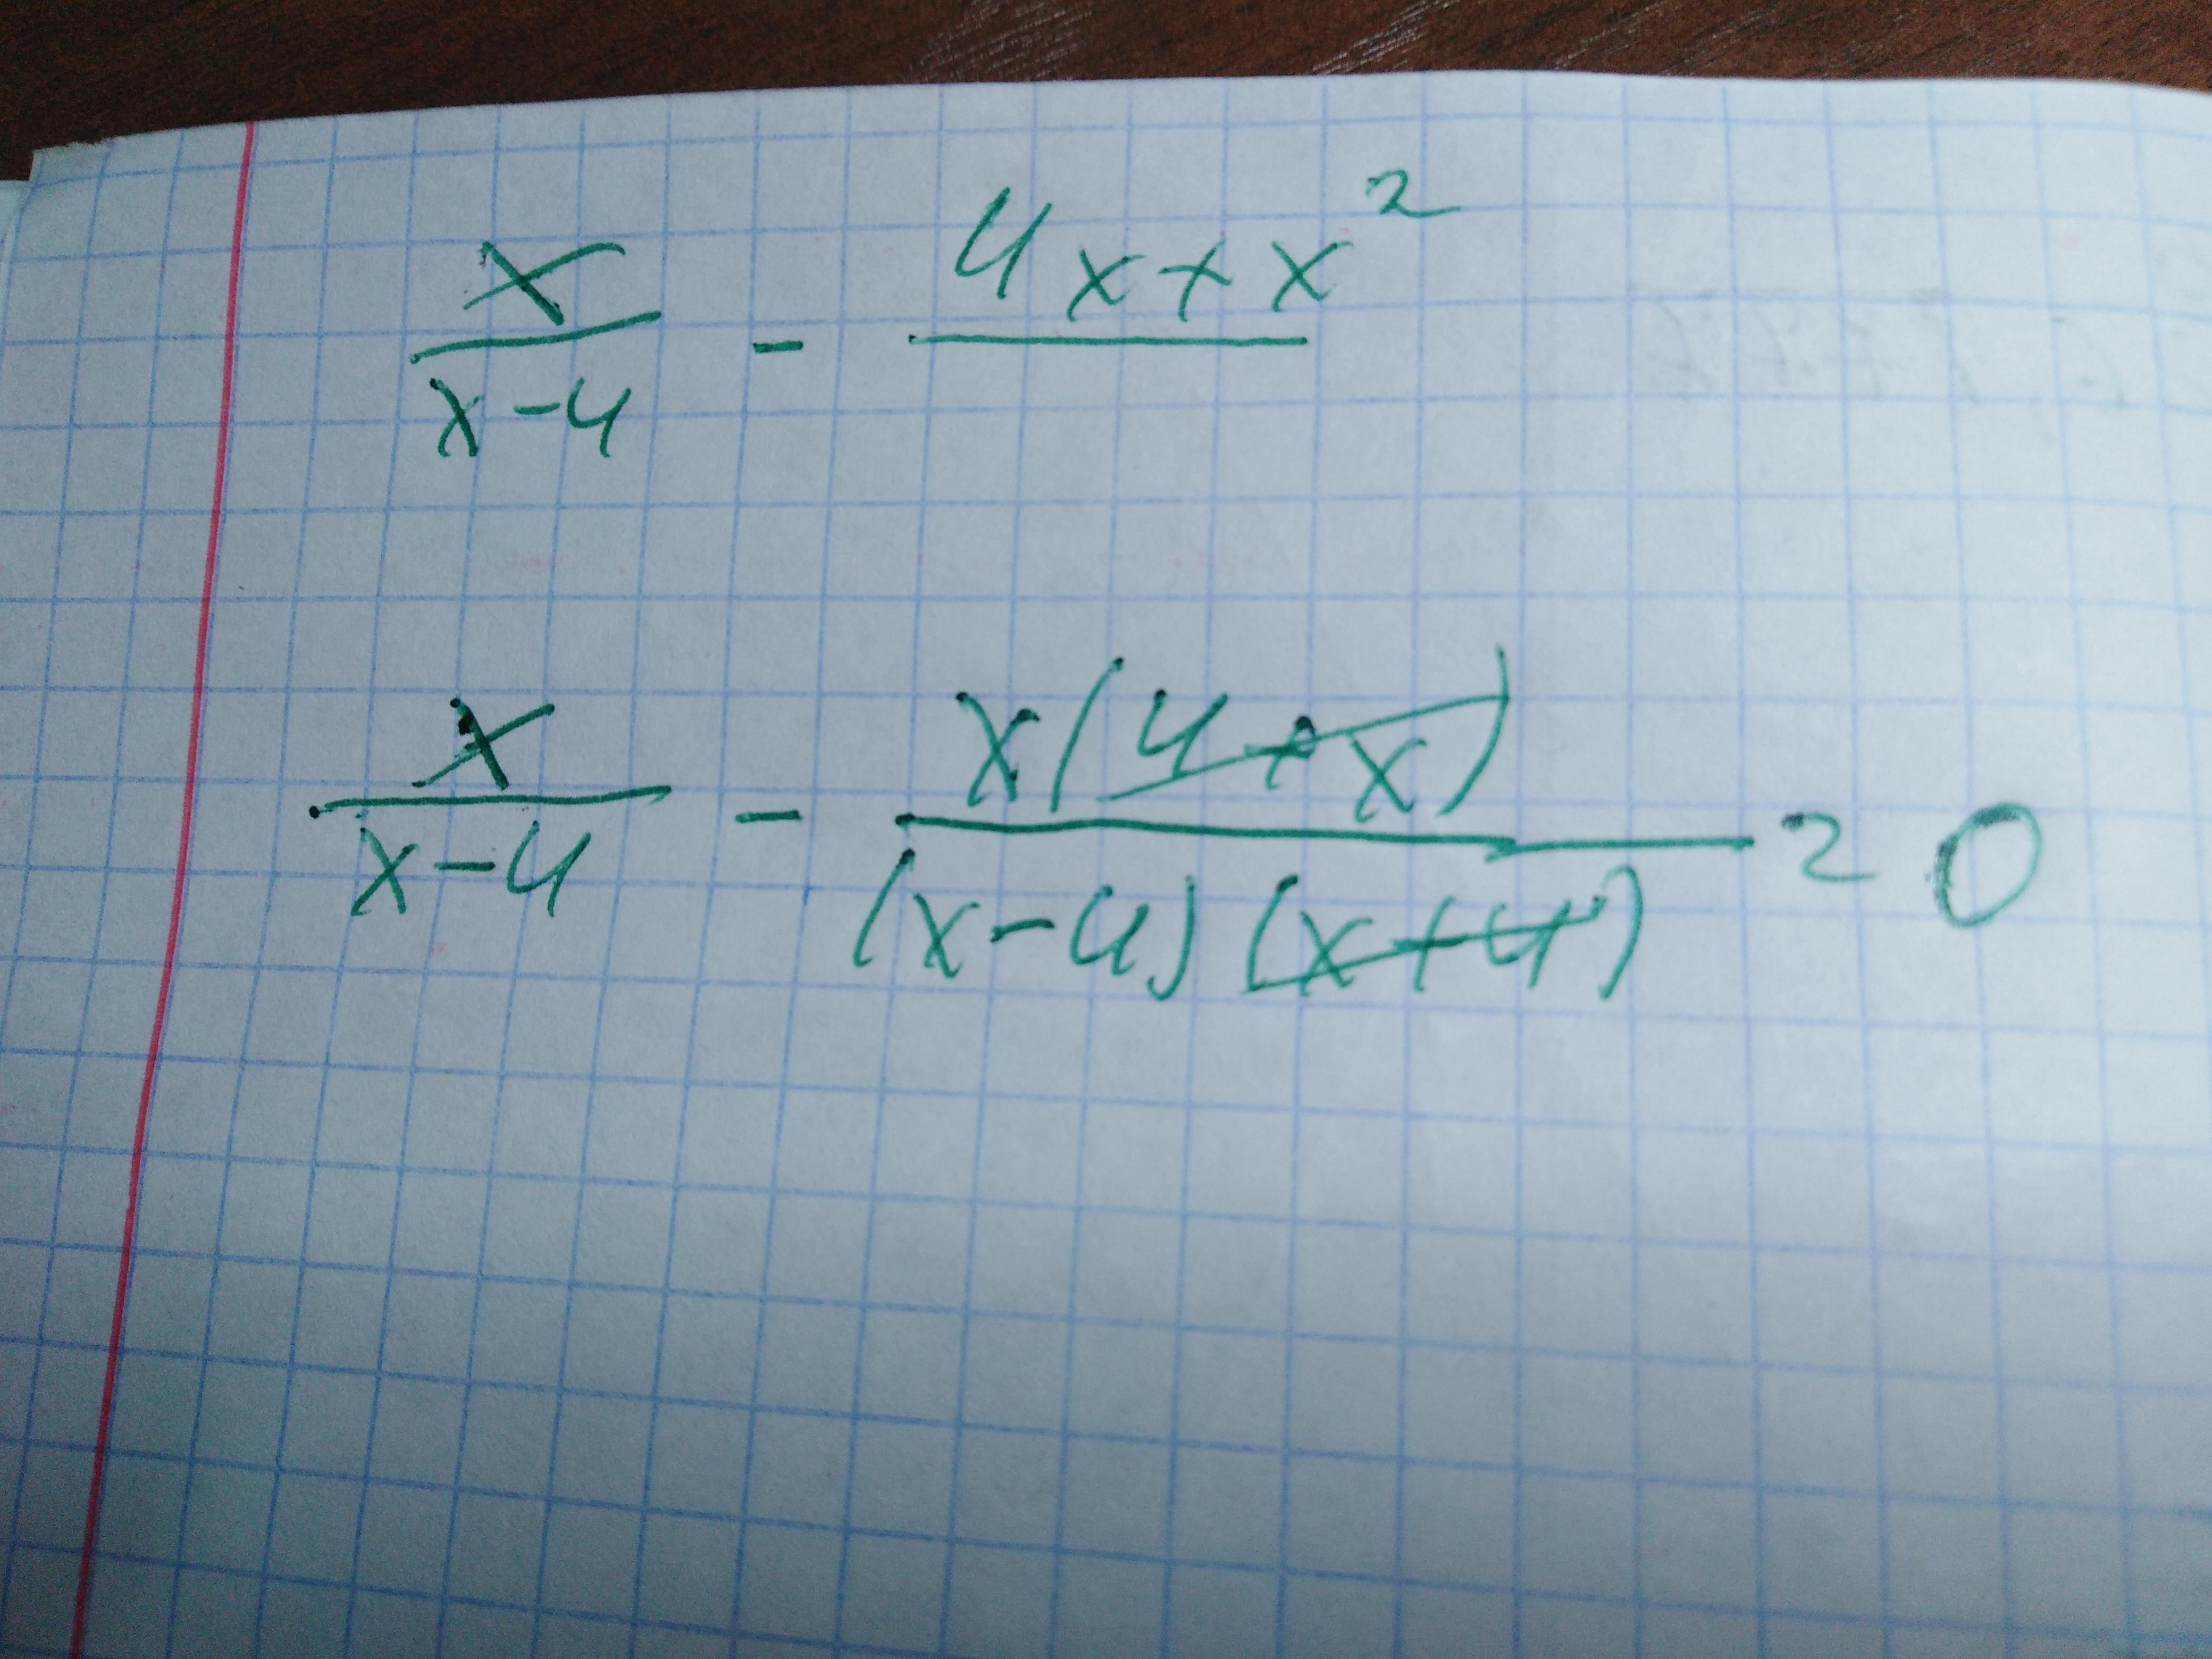 x/(x-4) - (4x+x²)/
x/(x-4) - x(4+x)/((x-4)(x+4)) = 0